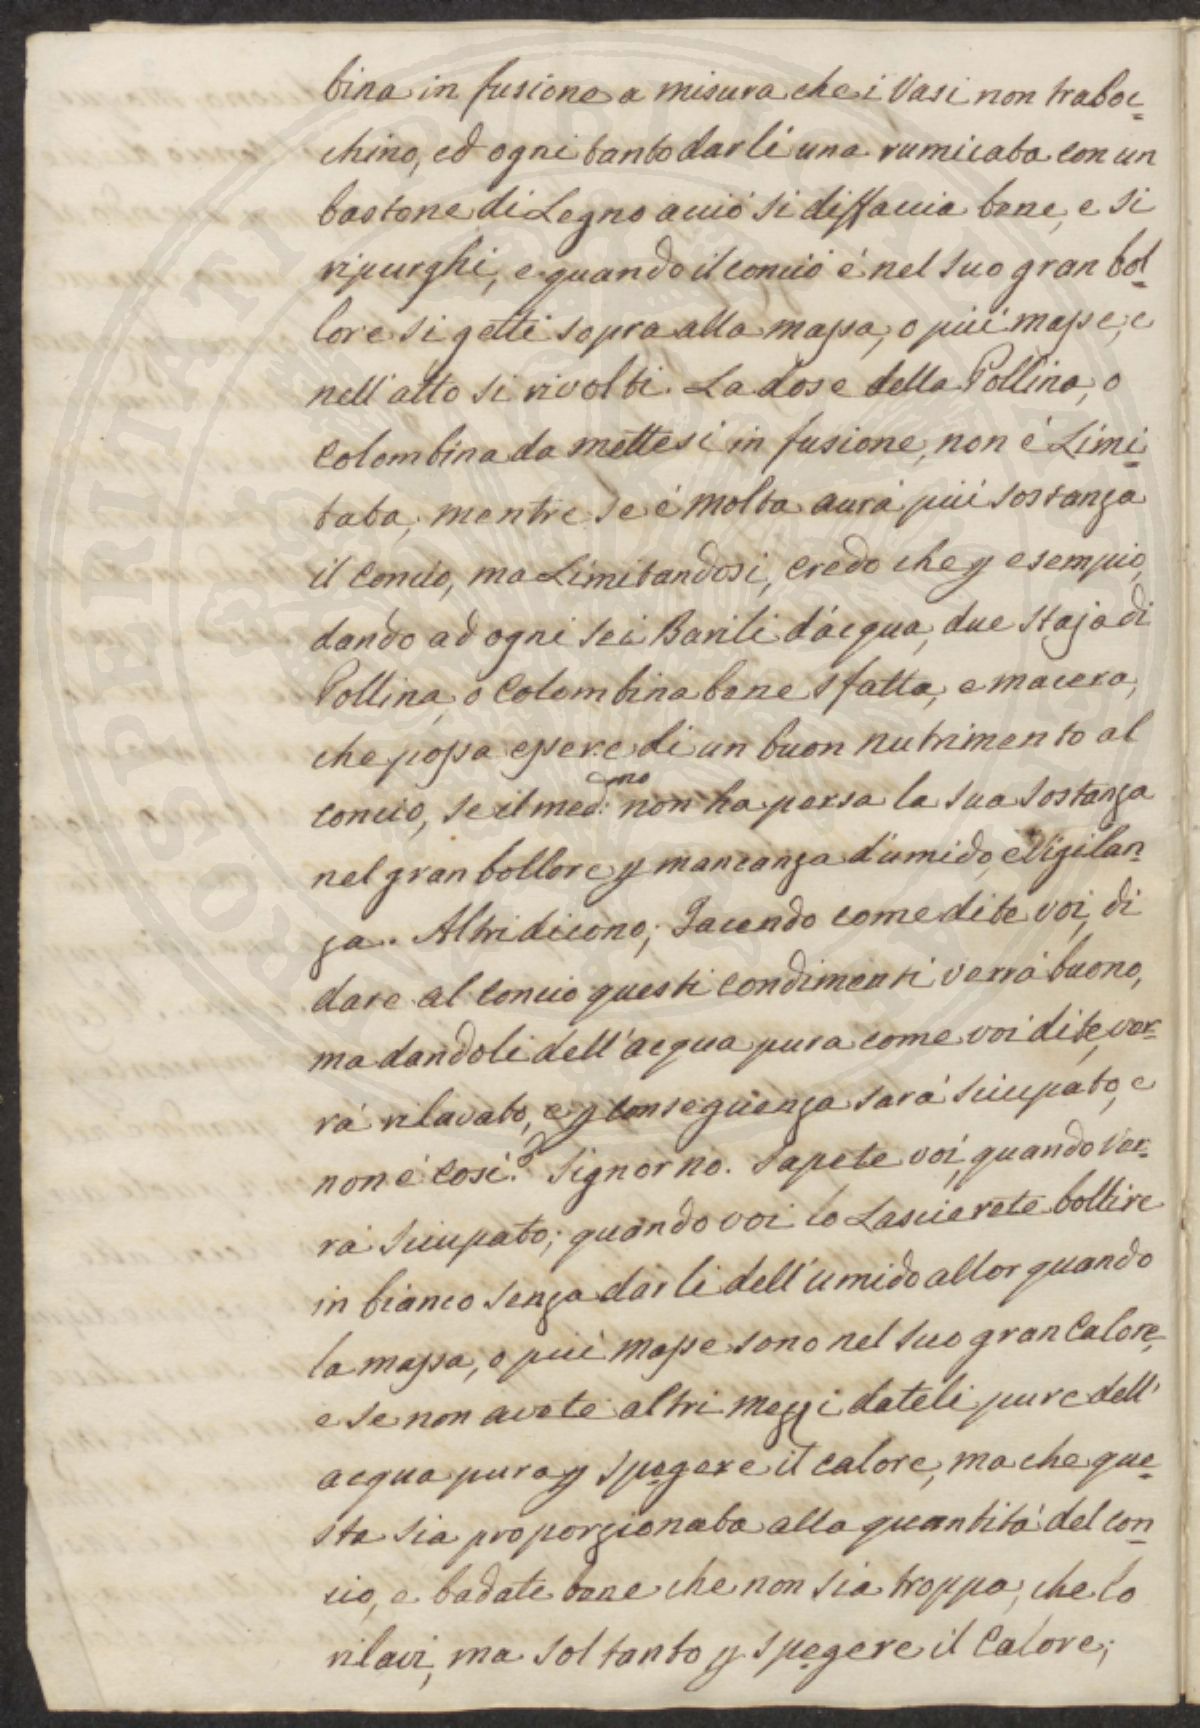 bina in fusione a misura che i Vasi non traboc=
chino, ed ogni tanto darli una rumicata con un
bastone di Legno acciò si disfaccia bene, e si
ripurghi, e quando il concio è nel suo gran bol=
lore si getti sopra alla massa, o più masse, e
nell'atto si rivolti. La dose della Pollina, o
Colombina da mettesi in fusione, non è Limi=
tata, mentre se è molta aurà più sostanza
il Concio, ma Limitandosi, credo che p esempio,
dando ad ogni sei Barili d'acqua, due Staja di
Pollina, o Colombina bene sfatta, e macera,
che possa essere di un buon nutrimento al
concio, se il med:emo non ha persa la sua sostanza
nel gran bollore p mancanza d'umido, e Vigilan=
za. Altri dicono; Facendo come dite voi, di
dare al Concio questi condimenti verrà buono,
ma dandoli dell'acqua pura come voi dite, ver=
rà rilavato, e p conseguenza sarà sciupato, e
non è così? Signor no. Sapete voi, quando ver=
rà sciupato; quando voi lo Lascierete bollire
in bianco senza darli dell'umido allor quando
la massa, o più masse sono nel suo gran Calore,
e se non avete altri mezzi dateli pure dell'
acqua pura p spegere il calore, ma che que=
sta sia proporzionata alla quantità del con=
cio, e badate bene che non sia troppa, che lo
rilavi, ma soltanto p spegere il Calore;
POSTERITATI PUBLICAE